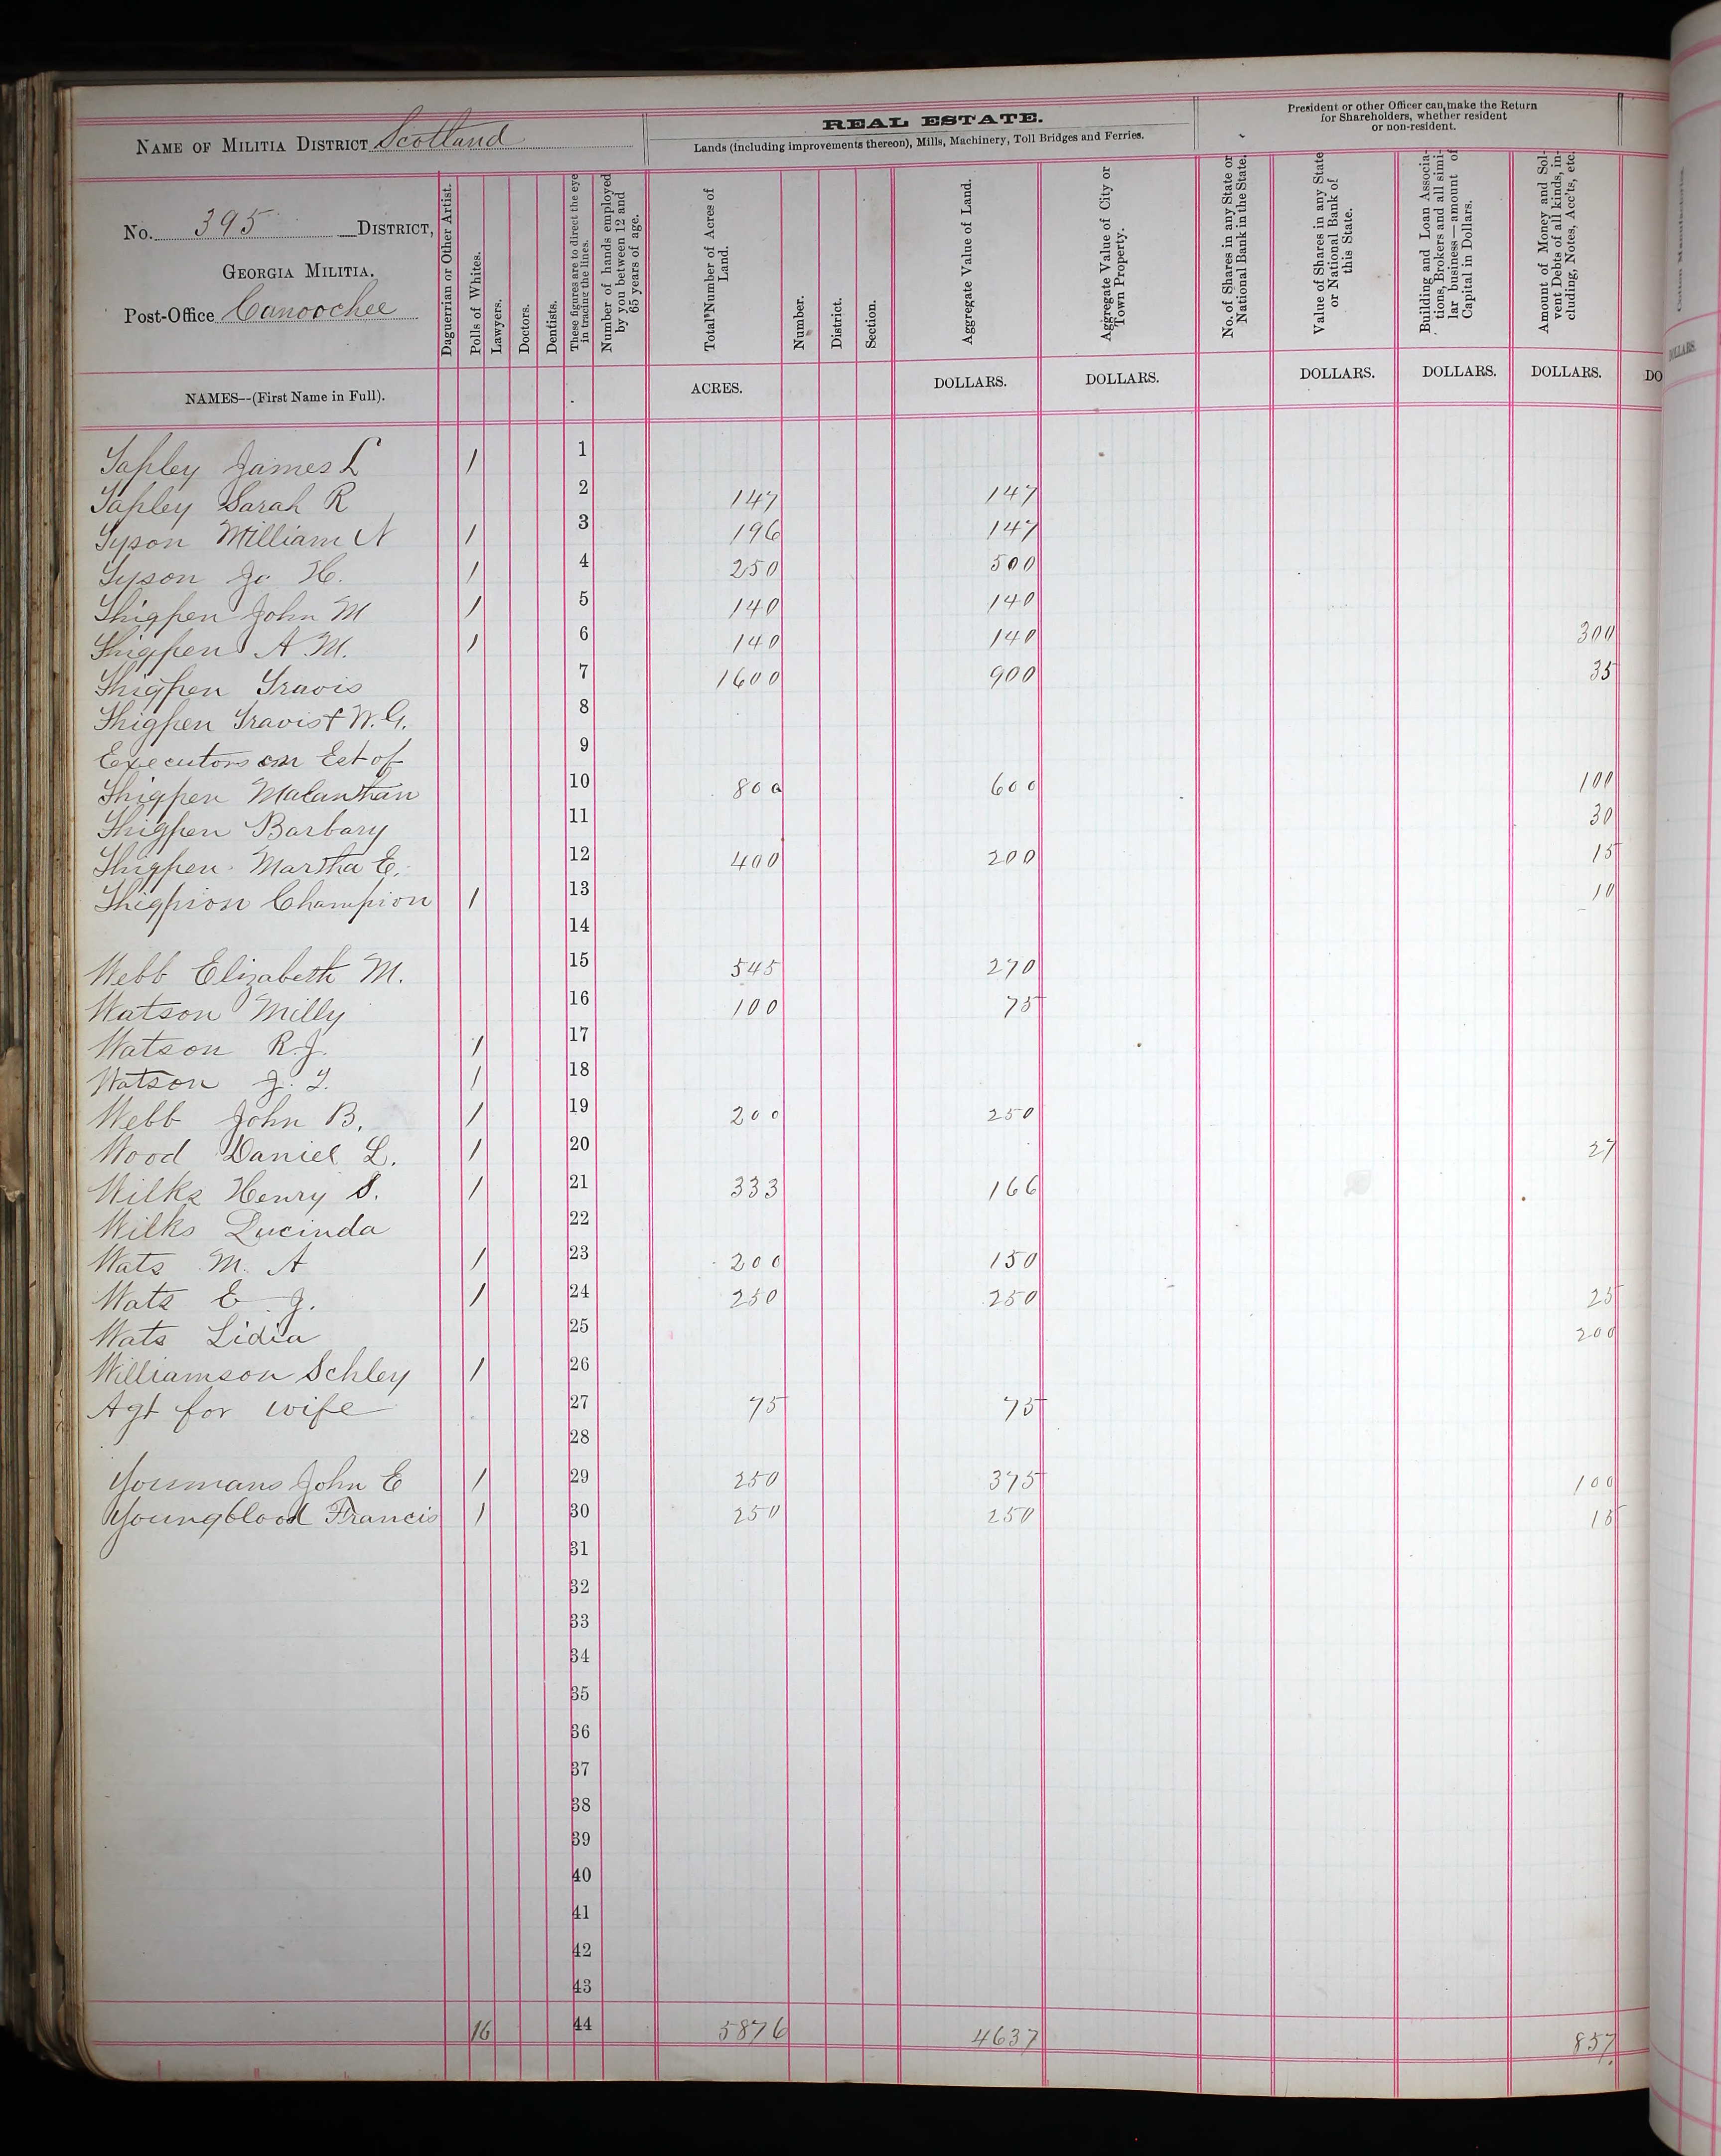 NAME OF MILITIA DISTRICT Scotland
No. 395 DISTRICT,
GEORGIA MILITIA.
Post-Office Canoochee
NAMES--(First Name in Full).
Daguerrian or Other Artist.
Polls of Whites.
Lawyers.
Doctors.
Dentists.
These figures are to direct the eye in tracing the lines.
Number of hands employed by you between 12 and 65 years of age.
REAL ESTATE.
Lands (including improvements thereon), Mills, Machinery, Toll Bridges and Ferries.
Total Number of Acres of Land.
ACRES.
Number.
District.
Section.
Aggregate Value of Land.
DOLLARS.
Aggregate Value of City or Town Property.
DOLLARS.
President or other Officer can make the Return
for Shareholders, whether resident
or non-resident.
No. of Shares in any State or National Bank in the State.
Value of Shares in any State or National Bank of this State.
DOLLARS.
Building and Loan Associations, Brokers and all similar business—amount of Capital in Dollars.
DOLLARS.
Amount of Money and Solvent Debts of all kinds, including, Notes, Acc'ts, etc.
DOLLARS.
DO
DOLLARS.
Tapley James L 1 1
Tapley Sarah R 2 147 147
Tyson William N 1 3 196 147
Tyson Jo H. 1 4 250 500
Thigpen John M 1 5 140 140
Thigpen A M. 1 6 140 140 300
Thigpen Travis 7 1600 900 35
Thigpen Travis & W. G. 8
Executors on Est of 9
Thigpen Malanthan 10 800 600 100
Thigpen Barbary 11 30
Thigpen Martha E. 12 400 200 15
Thigpion Champion 1 13 10
14
Webb Elizabeth M. 15 545 270
Watson Milly 16 100 75
Watson R. J. 1 17
Watson J. T. 1 18
Webb John B. 1 19 200 250
Wood Daniel L. 1 20 27
Wilks Henry S. 1 21 333 166
Wilks Lucinda 22
Wats M. A 1 23 200 150
Wats E. J. 1 24 250 250 25
Wats Lidia 25 200
Williamson Schley 1 26
Agt for wife 27 75 75
28
Youmans John E 1 29 250 375 100
Youngblood Francis 1 30 250 250 15
31
32
33
34
35
36
37
38
39
40
41
42
43
16 44 5876 4637 857